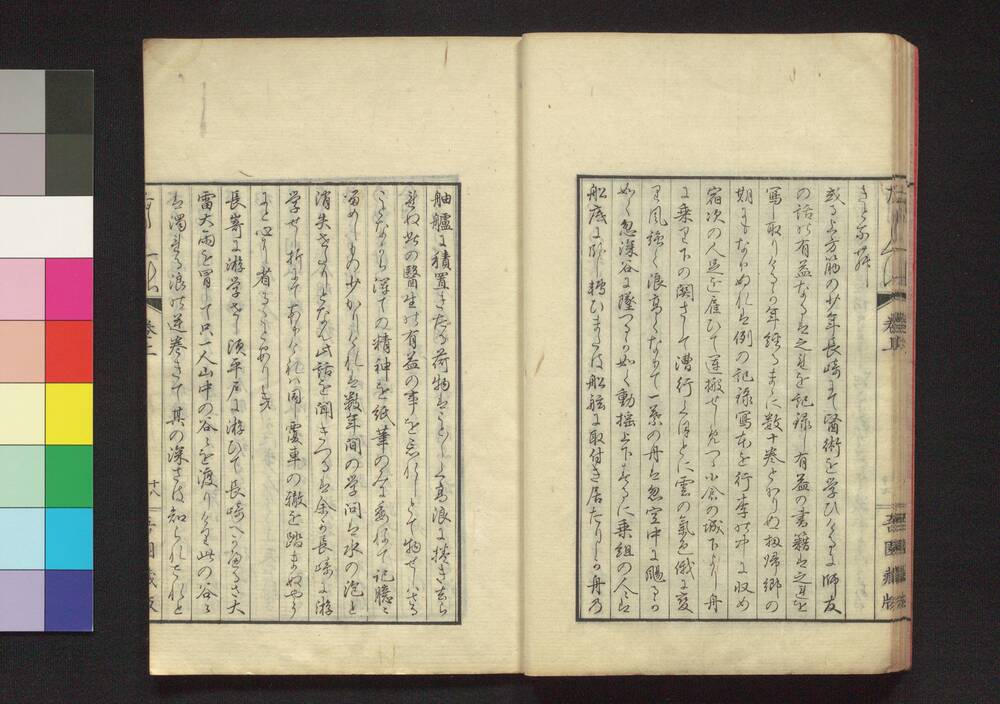 或る上方筋の少年長崎にて医術を学びける師友
の話の有益なるは之を記録し有益の書籍は之を
写し取りける年経るまゝに数十巻となりぬ扨帰郷の
期にもなりぬれは例の記録写本を行李の中に収め
宿次の人足を雇ひて運搬せしめつゝ小倉の城下より舟
に乗り下の関さして漕行くほとに雲の気色俄に変
り風強く浪高くなりて一葉の舟は忽空中に颺るか
如く忽深谷に墜つるか如く動揺上下するに乗組の人々は
船底に臥し轉ひまたは船舷に取付き居たりしか舟の
舳艫に積置きたる荷物はこと〳〵く高浪に捲き去ら
れぬ此の医生の有益の事を忘れしとて物せし
なから深ての精神を紙筆のみに委ねて記臆に
留めしもの少かりけれは数年間の学問は水の泡と
消失せたりとなん此話を聞きつるは余か長崎に游
学せし折にてありけれは同し覆車の轍を踏まぬやう
にと心し省る
長崎に游学せし頃平戸に游ひて長崎へかへるさ大
雷大雨を冒して只一人山中の谷々を渡りける此の谷々
は濁れる浪の逆巻きて其の深さは知られされと
巻之二
十八